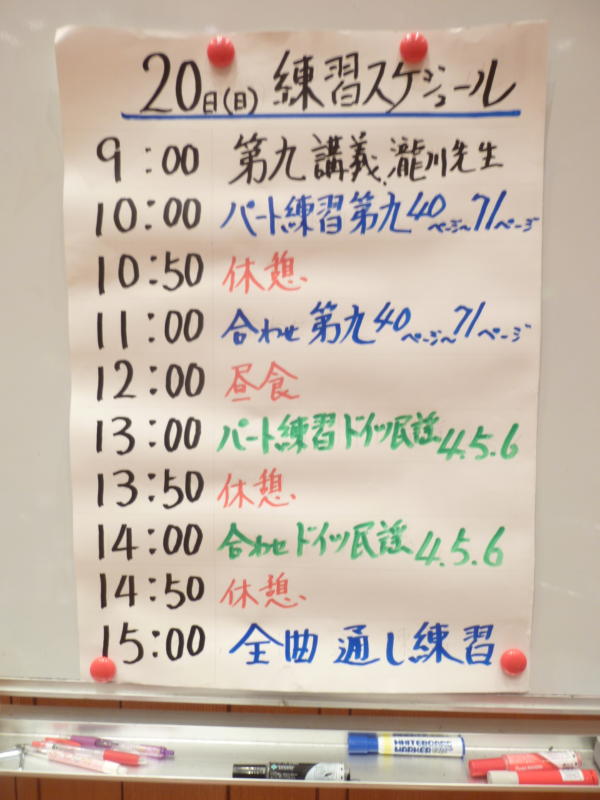 20日(日) 練習スケジュール
9:00 第九講義、瀧川先生
10:00 パート練習第九40ページ〜71ページ
10:50 休憩、
11:00 合わせ第九40ページ〜71ページ
12:00 昼食
13:00 パート練習ドイツ民謡4.5.6
13:50 休憩、
14:00 合わせドイツ民謡4.5.6
14:50 休憩、
15:00 全曲 通し練習
WHITEBOARD
MARKER